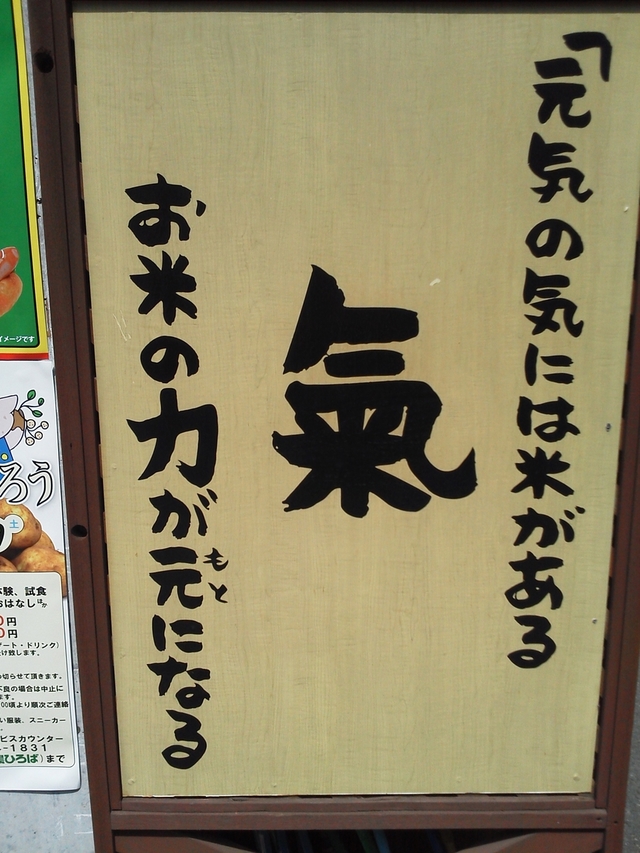 「元気の気には米がある
氣
お米の力が元になる
もと
イメージです
ろう
土
験、試食
おはなしほか
0円
0円
ート・ドリンク)
け致します。
切らせて頂きます。
不良の場合は中止に
ます。
00頃より順次ご連絡
い服装、スニーカー
ビスカウンター
-1831
ひろば)まで